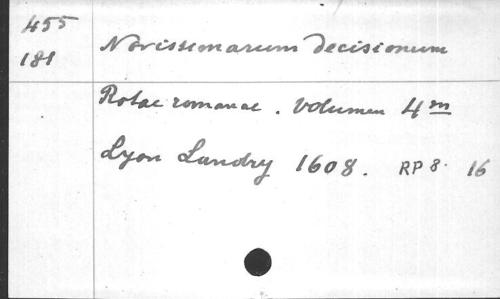 455
181
Novissimarum Decisionum
Rotae romanae. Volumen 4m
Lyon Landry 1608. RP 8. 16